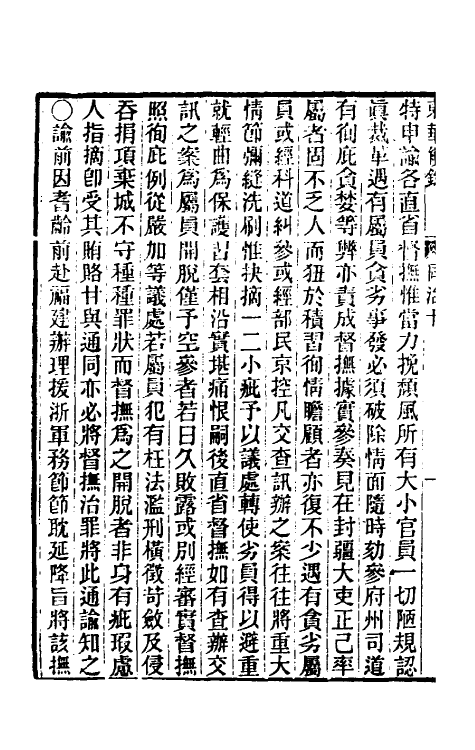 東華續錄　同治十　一
特申諭各直省督撫惟當力挽頹風所有大小官員一切陋規認
眞裁革遇有屬員貪劣事發必須破除情面隨時劾參府州司道
有徇庇貪婪等弊亦責成督撫據實參奏見在封疆大吏正己率
屬者固不乏人而狃於積習徇情瞻顧者亦復不少遇有貪劣屬
員或經科道糾參或經部民京控凡交查訊辦之案往往將重大
情節彌縫洗刷惟抉摘一二小疵予以議處轉使劣員得以避重
就輕曲爲保護習套相沿實堪痛恨嗣後直省督撫如有查辦交
訊之案爲屬員開脫僅予空參者若日久敗露或別經審實督撫
照徇庇例從嚴加等議處若屬員犯有枉法濫刑橫徵苛斂及侵
吞捐項棄城不守種種罪狀而督撫爲之開脫者非身有疵瑕處
人指摘卽受其賄賂甘與通同亦必將督撫治罪將此通諭知之
〇諭前因耆齡前赴福建辦理援浙軍務節節耽延降旨將該撫